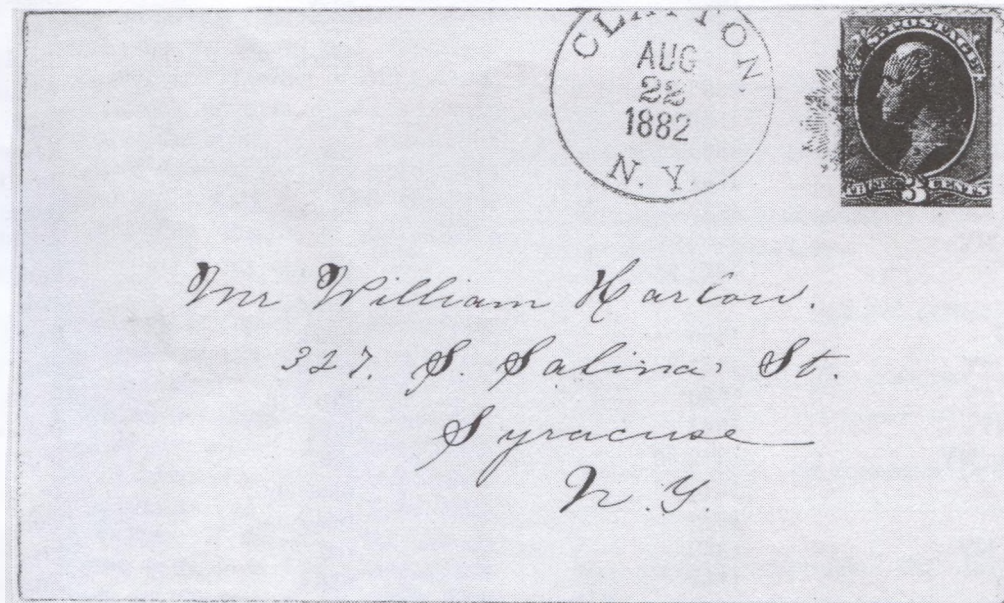 CLAYTON,
AUG
22
1882
N.Y.
U.S. POSTAGE
THREE 3 CENTS
Mr William Harlow.
327. S. Salina St.
Syracuse
N.Y.